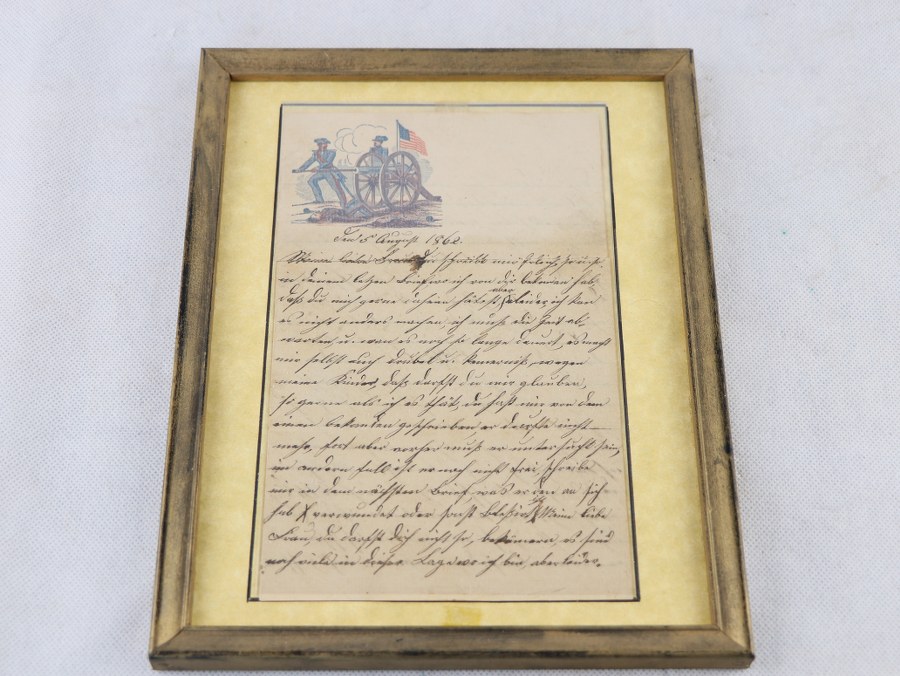 den 5 August 1862.
Meine liebe Frau der schreibe mir
in deinem letzen Brief wo ich von dir bekomen hab
daß du mich gerne daheim hätest, aber leider ich kan
es nicht anders machen ich muß die Zeit ab,
warten, u. wan es noch so lange dauert, es macht
mir selbst auch Trubel u. Kümerniß, wegen
meine Kinder, daß darfst du mir glauben,
so gerne als ich es thät, du hast mir von dem
einen bekanden geschrieben er deurfte nicht
mehr, fort aber vorher muß er untersucht sein,
im andern fall ist er noch nicht frei, schreibe
mir in dem nächsten Brief was er den an sich
hab verwundet oder sonst Meine liebe
Frau, du darfst dich nicht so, bekümern, es sind
noch viele in dieser Lage wo ich bin, aber leider,